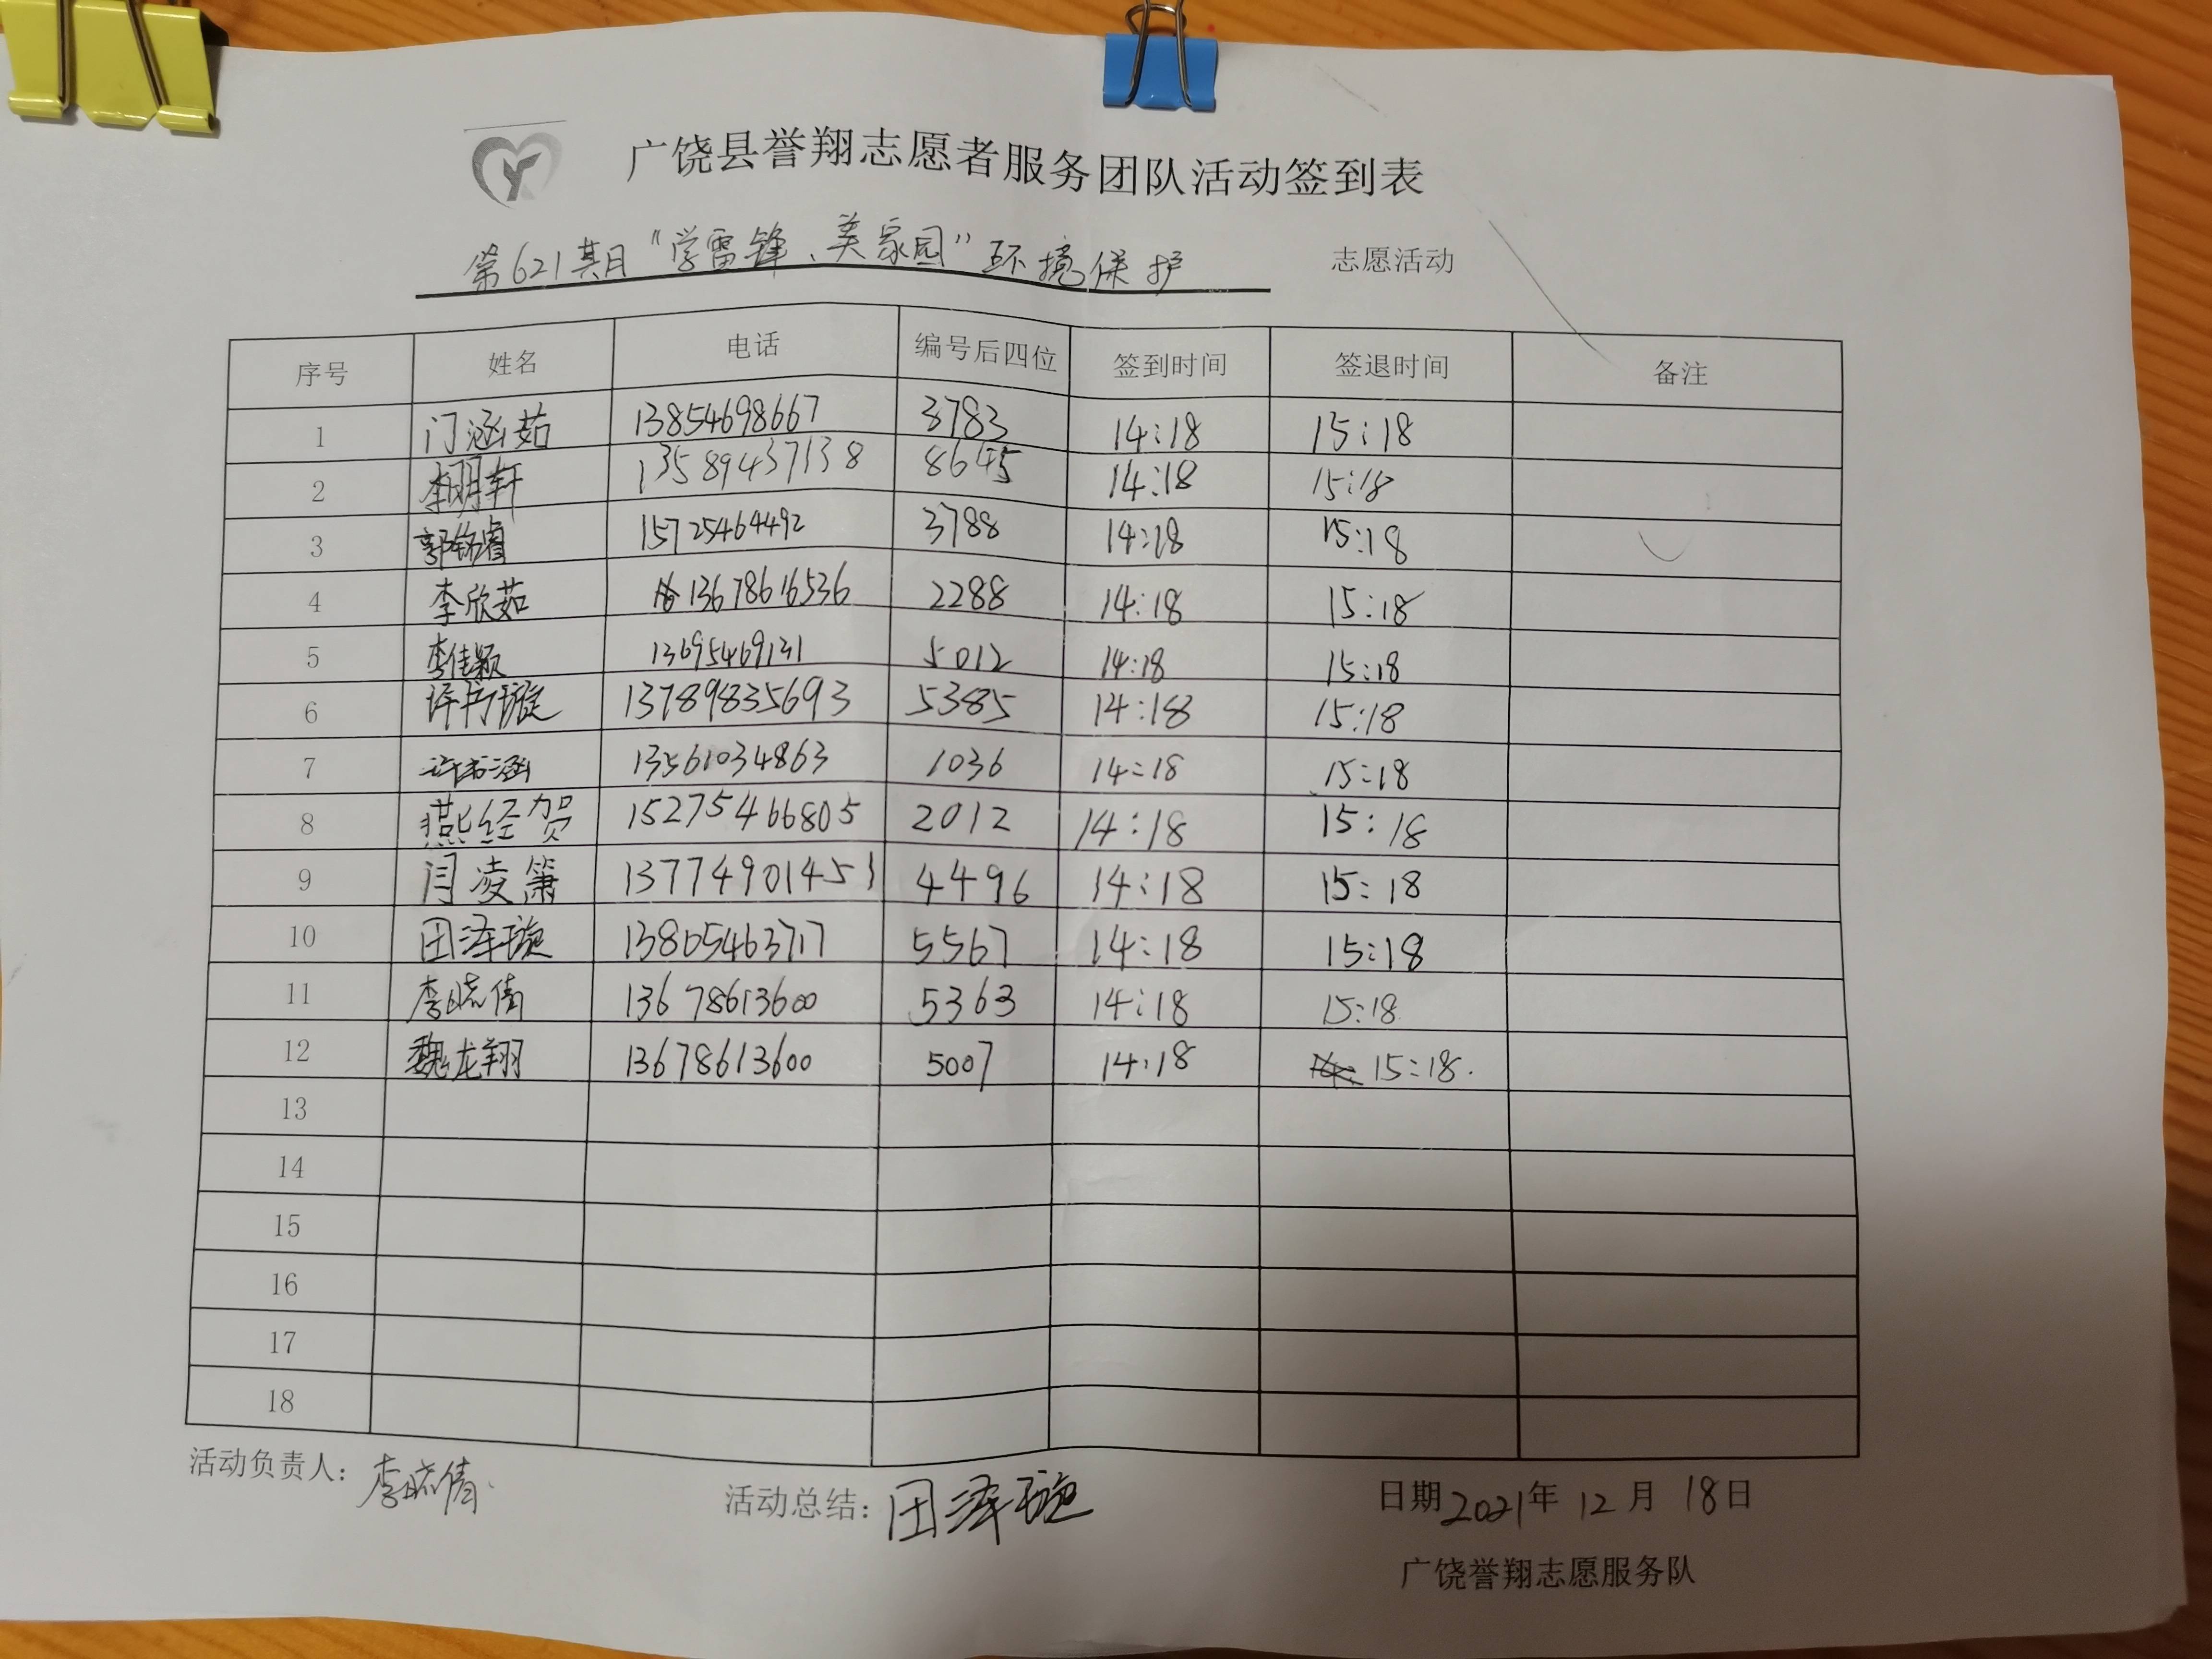 广饶县誉翔志愿者服务团队活动签到表
第621期日“学雷锋、美家园”环境保护 志愿活动
序号 姓名 电话 编号后四位 签到时间 签退时间 备注
1 门涵茹 13854698667 3783 14:18 15:18
2 李明轩 13589437138 8645 14:18 15:18
3 郭铭睿 15725464492 3788 14:18 15:18
4 李欣茹 13678616536 2288 14:18 15:18
5 李佳颖 13695469131 5012 14:18 15:18
6 许书璇 13789835693 5385 14:18 15:18
7 许书涵 13561034863 1036 14:18 15:18
8 燕经贺 15275466805 2012 14:18 15:18
9 闫凌箫 13774901451 4496 14:18 15:18
10 田泽璇 13805463717 5567 14:18 15:18
11 李晓倩 13678613600 5363 14:18 15:18
12 魏龙翔 13678613600 5007 14:18 15:18.
13
14
15
16
17
18
活动负责人：李晓倩 活动总结：田泽璇 日期2021年12月18日
广饶誉翔志愿服务队